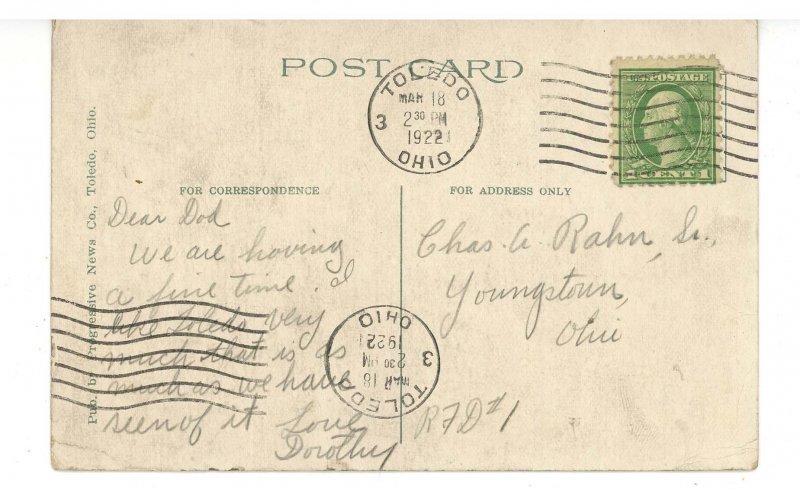 POST CARD
TOLEDO
MAR 18
2 30 PM
1922
OHIO
3
U.S. POSTAGE
1 CENT 1
FOR CORRESPONDENCE
FOR ADDRESS ONLY
Pub. by Progressive News Co., Toledo, Ohio.
Dear Dad
We are having
a fine time. I
like Toledo very
much that is as
much as we have
seen of it Love
Dorothy
Chas. A. Rahn, Sr.,
Youngstown,
Ohio
RFD #1
TOLEDO
MAR 18
2 30 PM
1922
OHIO
3